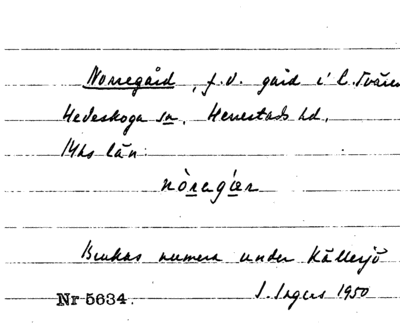 Norregård, f.d. gård i L. Tvären
Hedeskoga sn. Herrestads hd,
Mhs län.
nòragı̊er
Brukas numera under Källesjö
Nr 5634. I. Ingers 1950